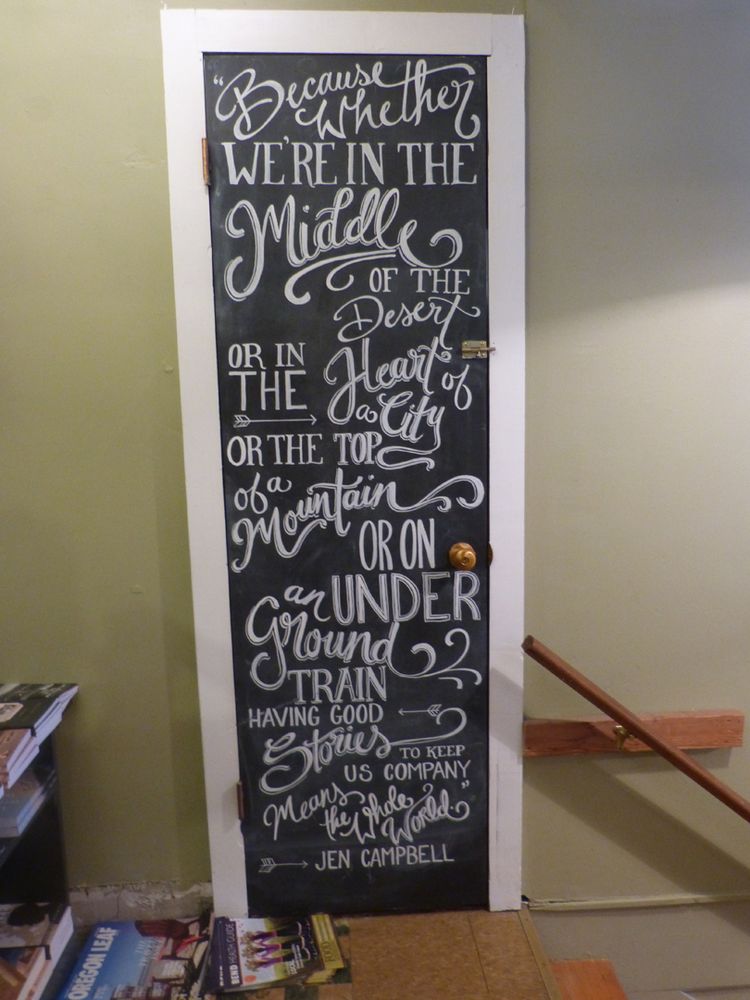 "Because
Whether
WE'RE IN THE
Middle
OF THE
Desert
OR IN
THE
Heart of
a City
OR THE TOP
of a
Mountain
OR ON
an UNDER
Ground
TRAIN
HAVING GOOD
Stories
TO KEEP
US COMPANY
Means
the Whole
World."
JEN CAMPBELL
OREGON LEAF
BEND HEALTH GUIDE